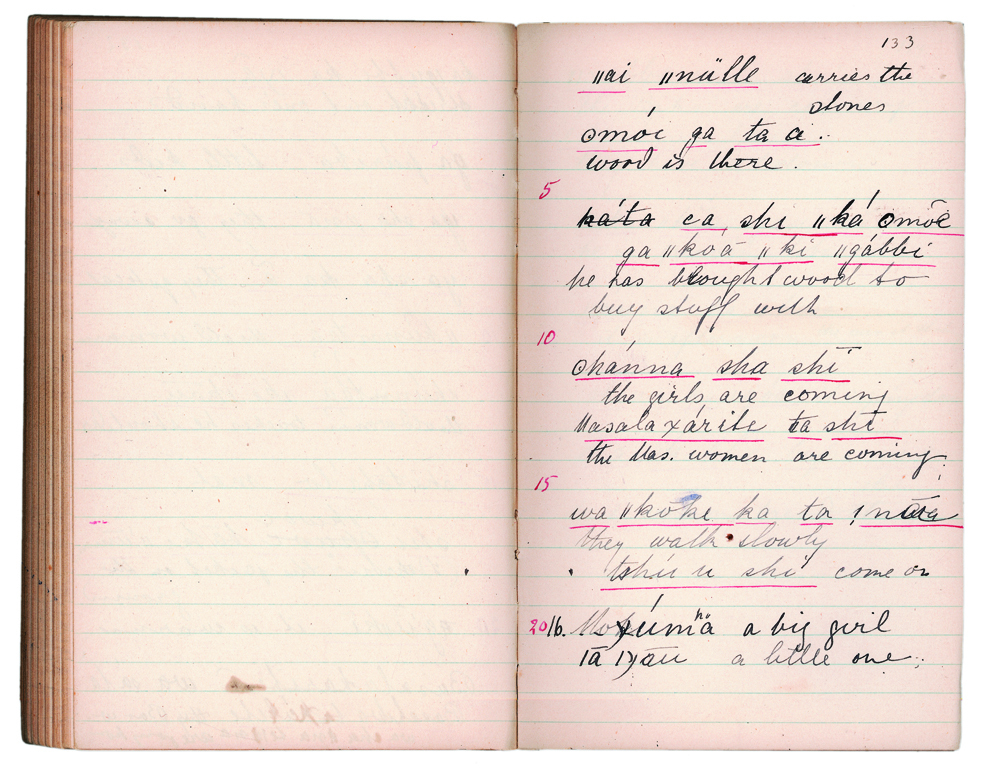 133
ǁai ǁnülle carries the
stones
omói ga ta a ..
wood is there .
5
káta ca she ǁká omóe
ga ǁkoā ǁki ǁgábbi
he has brought wood to
buy stuff with
10
okánna sha shī
the girls are coming
Masalaxárite ta shī
the Mas. women are coming
15
wa ǁkōke ka ta
they walk slowly
u shi come on
20 16. a big girl
a little one.